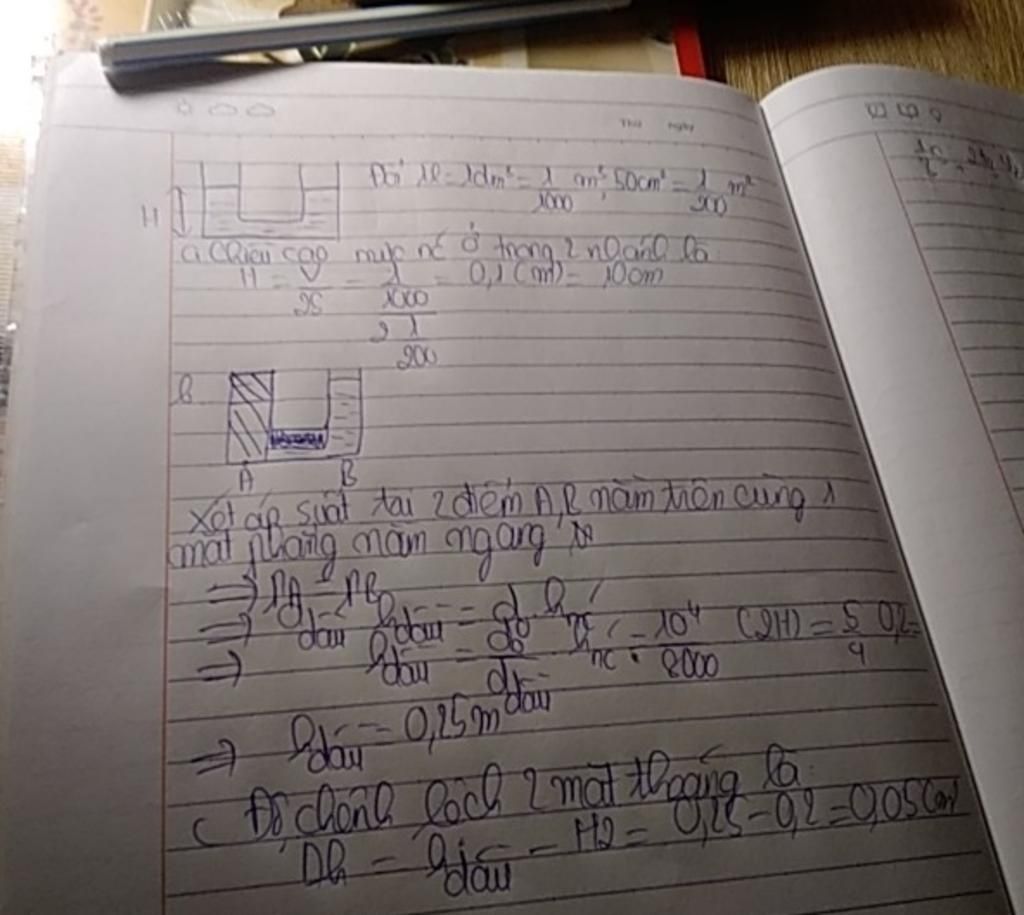 Thứ ngày
Đổi 1l = 1dm³ = 1/1000 m³, 50cm² = 1/200 m²
H
a Chiều cao mực nc ở trong 2 nhánh là
H = V/2S = (1/1000)/(2 1/200) = 0,1 (m) = 10cm
b
A B
Xét áp suất tại 2 điểm A, B nằm trên cùng 1
mặt phẳng nằm ngang
=> PA = PB
=> d dầu h dầu = do h nc
=> h dầu = do/d dầu h nc = 10⁴/8000 (2H) = 5/4 0,2 =
=> h dầu = 0,25m
c Độ chênh lệch 2 mặt thoáng là
Dh = h dầu - H2 = 0,25 - 0,2 = 0,05 (m)